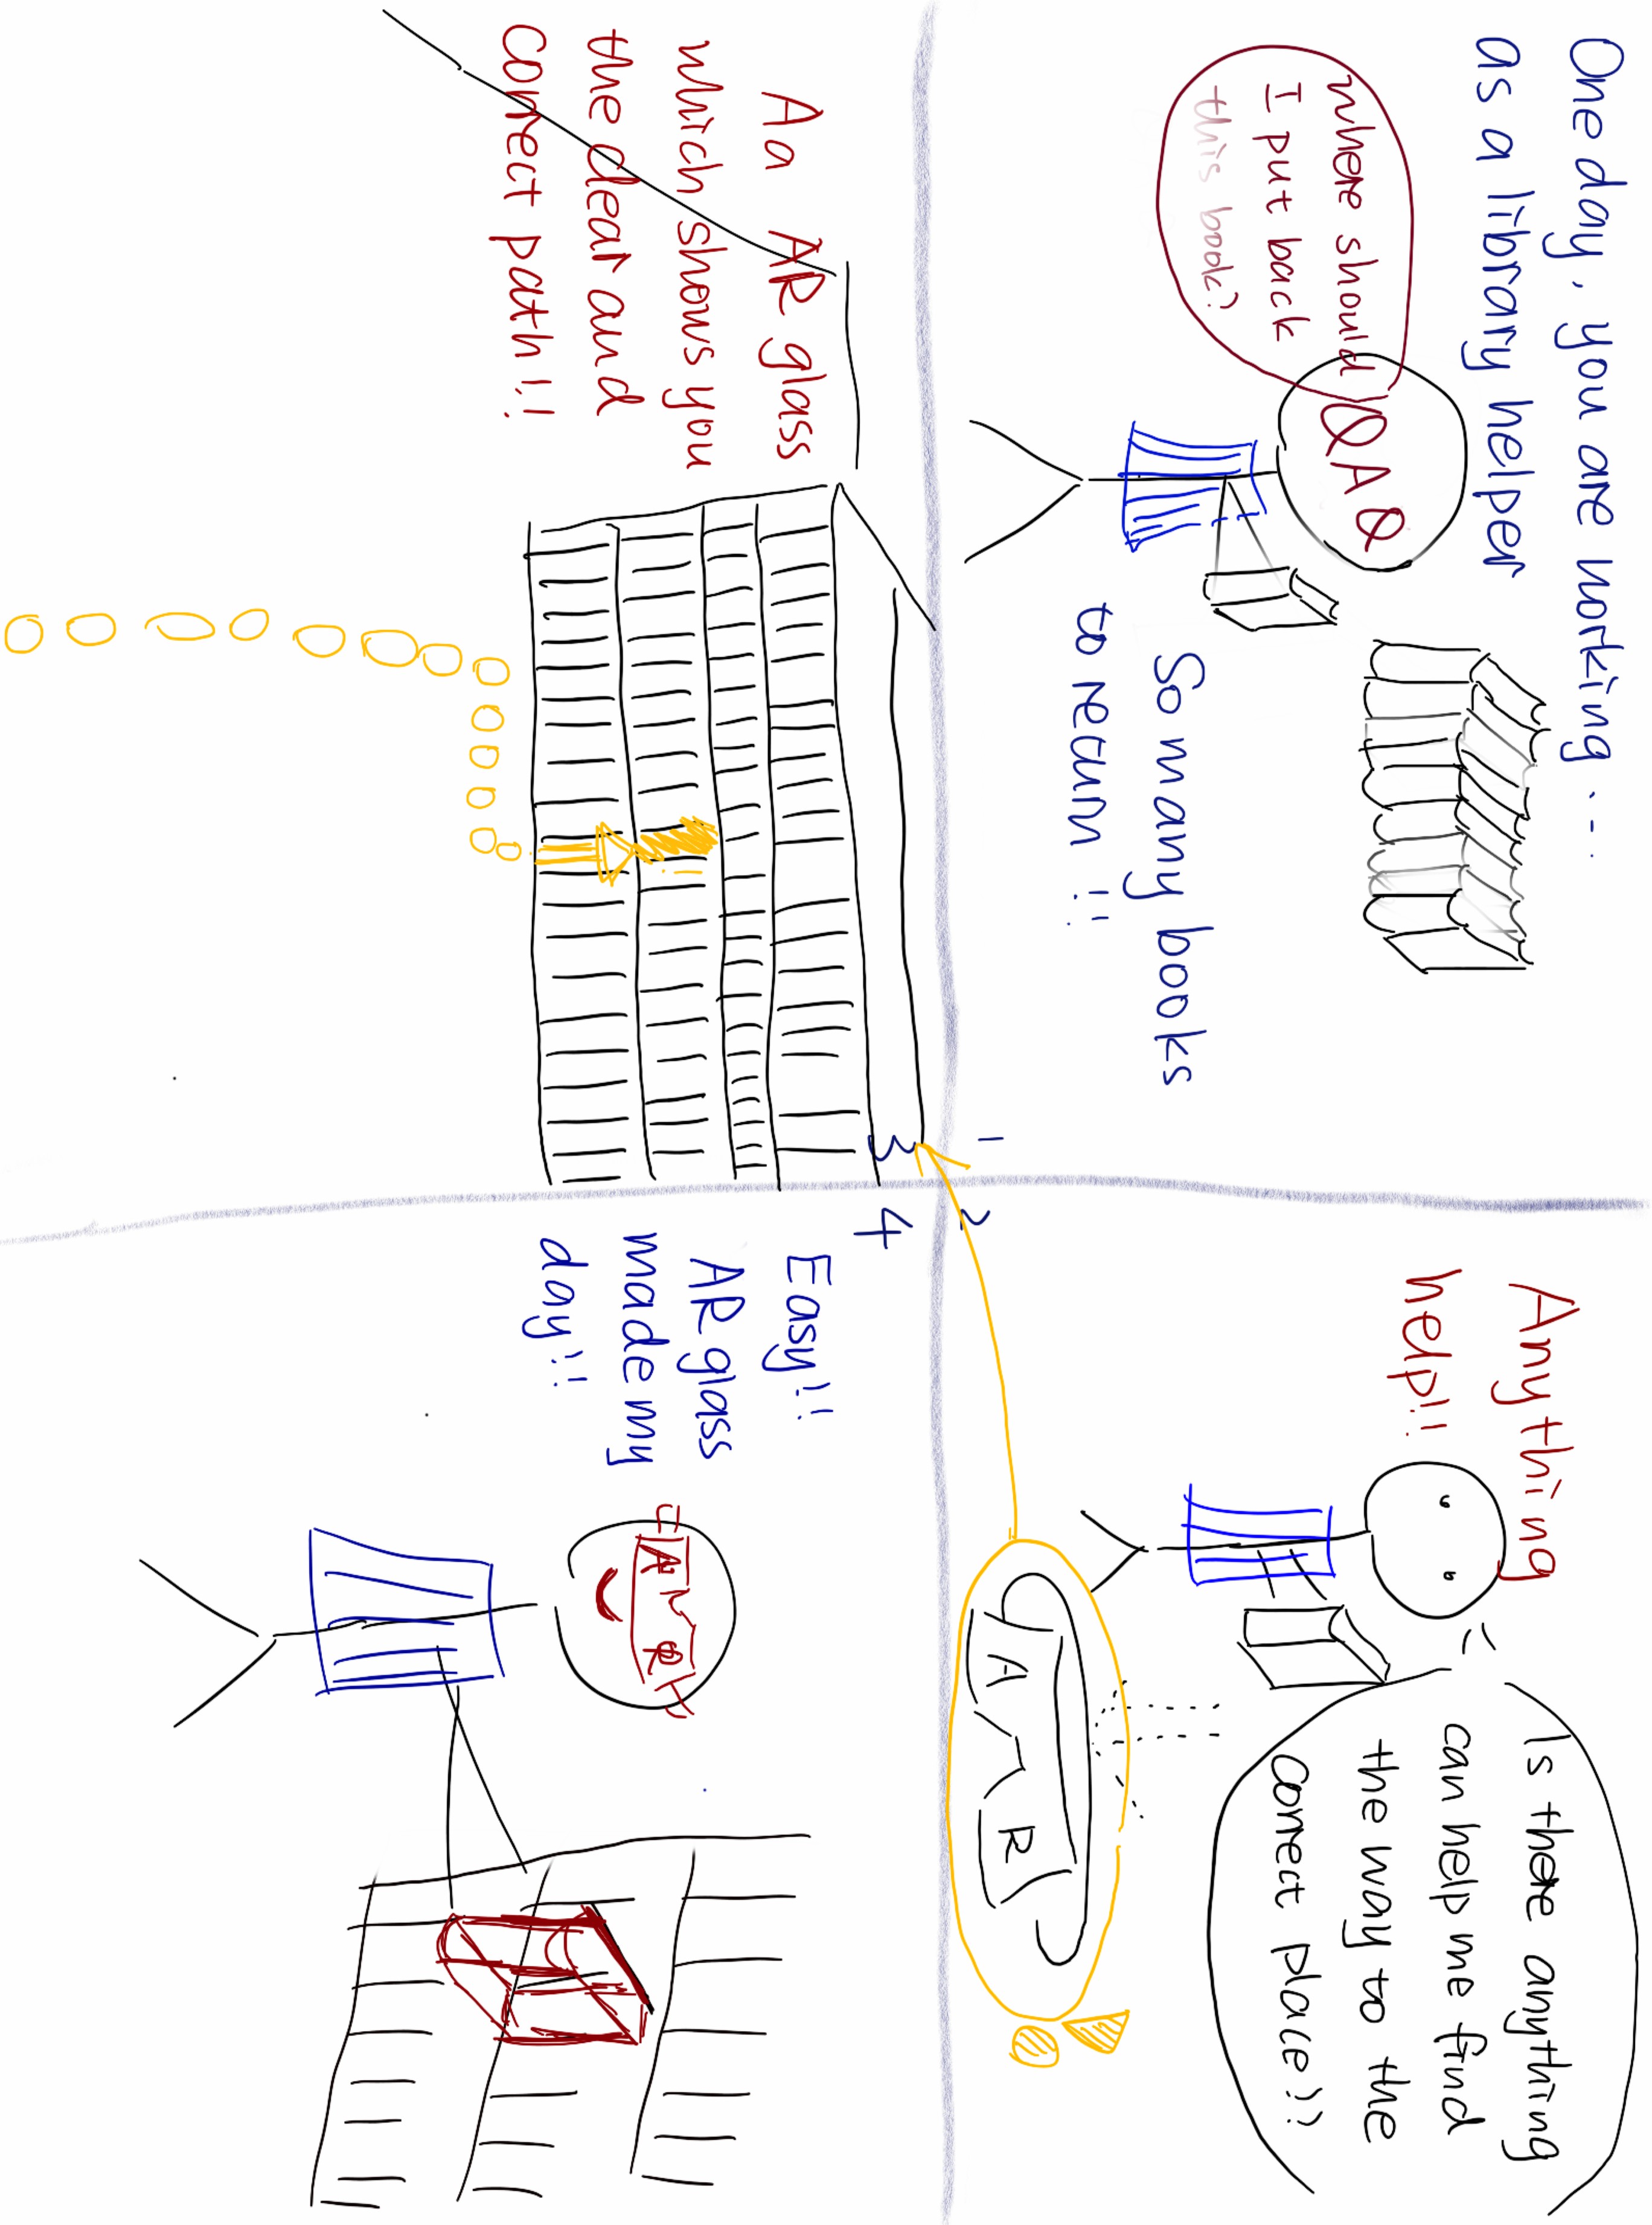 One day, you are working ....
as a library helper
where should
I put back
this book?
QAQ
So many books
to return !!
1
Anything
help!!
Is there anything
can help me find
the way to the
correct place!!
A R
2
3
Aa AR glass
which shows you
the clear and
correct path!!!
4
Easy!!
AR glass
made my
day!!!
A R